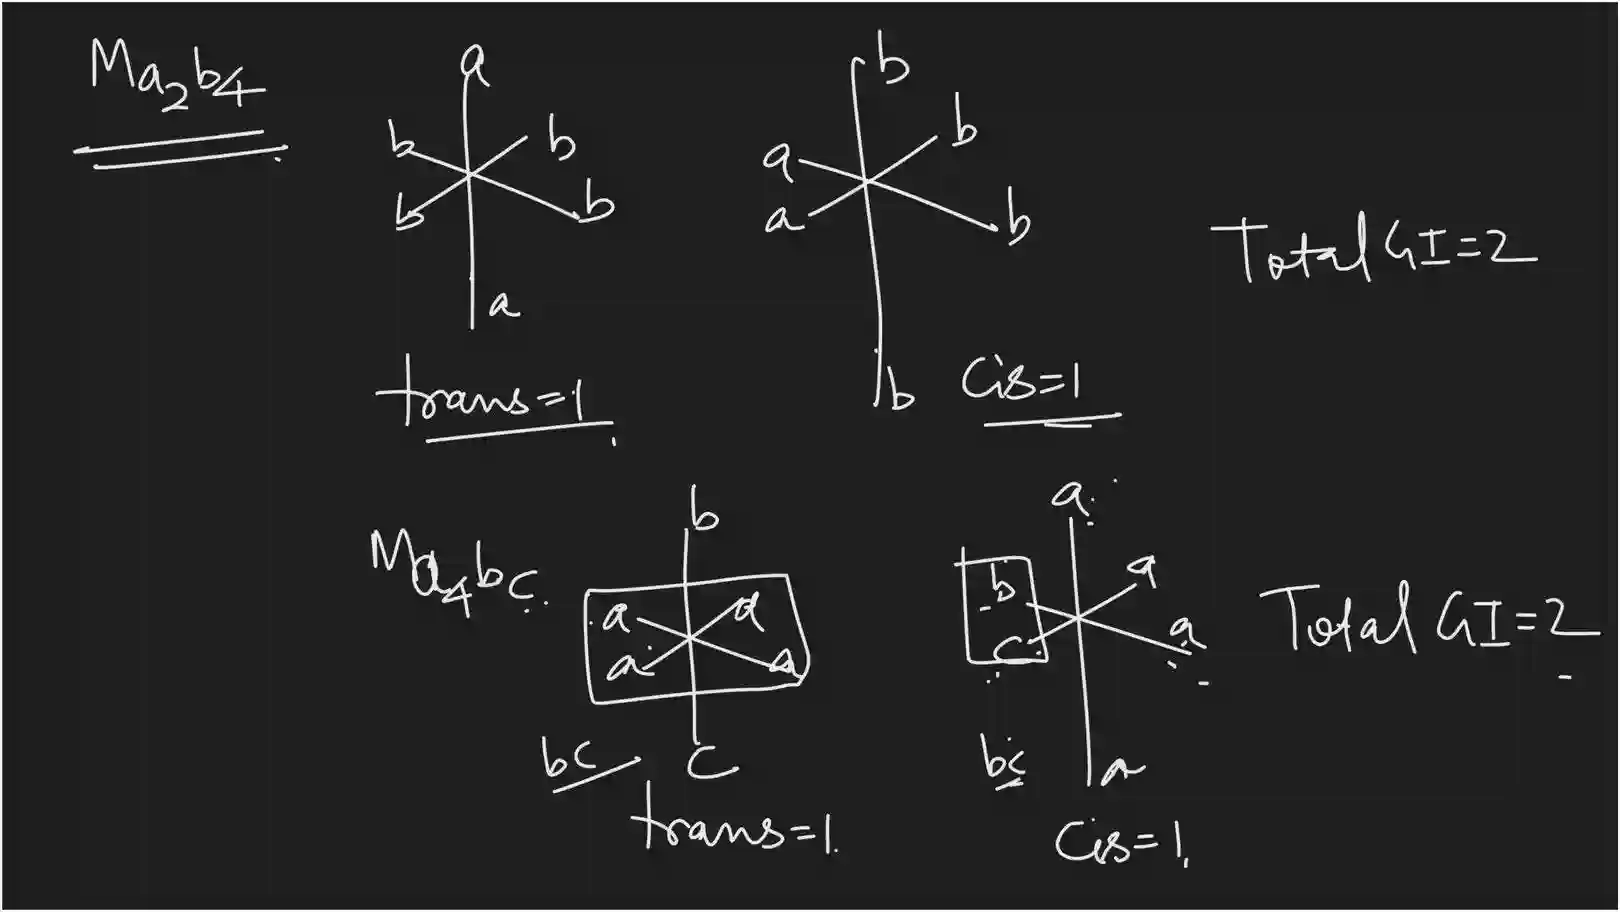 Ma2b4
a
b b
b b
a
trans=1
b
a b
a b
b
Cis=1
Total GI=2
Ma4bc
b
a a
a a
c
bc
trans=1
a
b a
c a
a
bc
Cis=1
Total GI=2